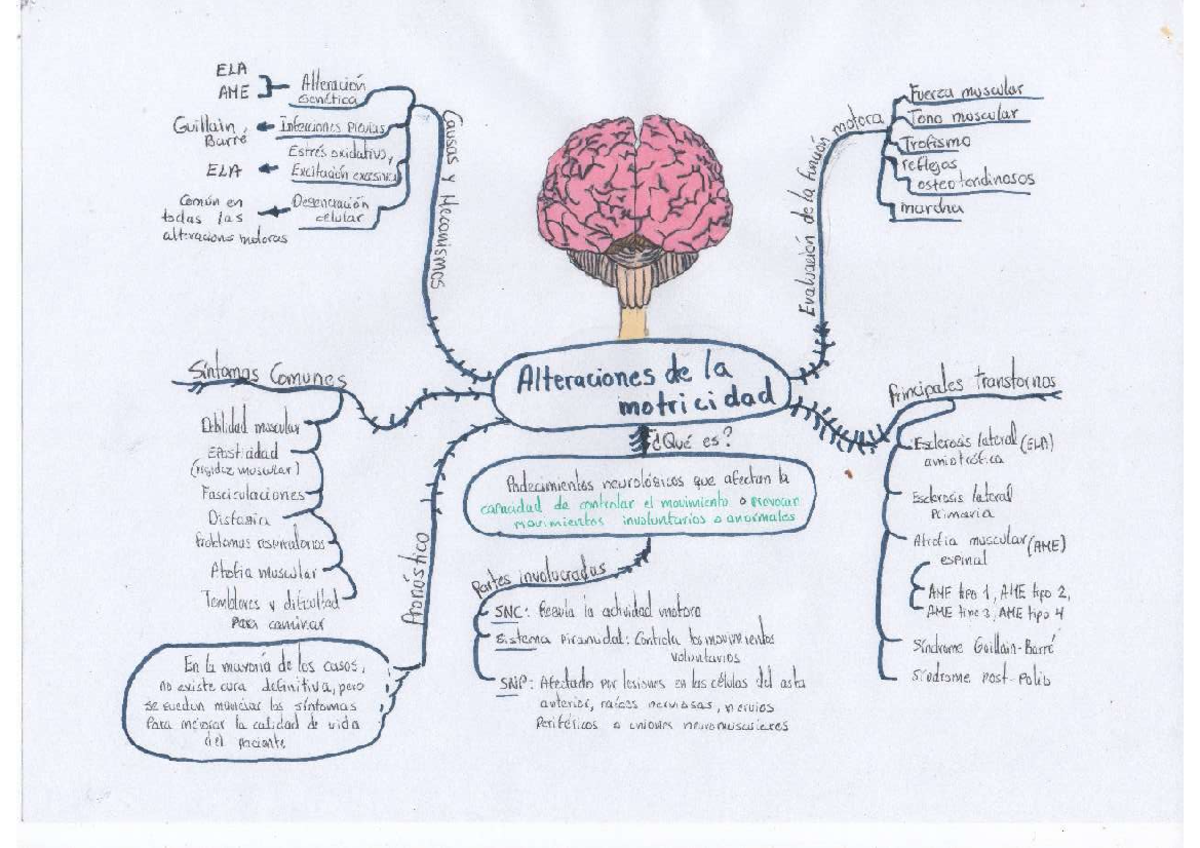 Alteraciones de la
motricidad
¿Qué es?
Padecimientos neurológicos que afectan la
capacidad de controlar el movimiento o provocar
movimientos involuntarios o anormales
Partes involucradas
SNC: Regula la actividad motora
Sistema Piramidal: Controla los movimientos
voluntarios
SNP: Afectado por lesiones en las células del asta
anterior, raíces nerviosas, nervios
Periféricos o uniones neuromusculares
Causas y Mecanismos
Alteración
Genética
ELA
AME
Infecciones Previas
Guillain
Barré
Estrés oxidativo,
Excitación excesiva
ELA
Degeneración
celular
Común en
todas las
alteracions motoras
Evaluación de la función motora
Fuerza muscular
Tono muscular
Trofismo
reflejos
osteotendinosos
marcha
Síntomas Comunes
Debilidad muscular
(rigidez muscular)
Fasciculaciones
Disfagia
Problemas respiratorios
Atrofia muscular
Temblores y dificultad
Para caminar
Pronóstico
En la mayoría de los casos,
no existe cura definitiva, pero
se pueden manejar los síntomas
Para mejorar la calidad de vida
del paciente
Principales transtornos
Esclerosis lateral (ELA)
amiotrófica
Esclerosis lateral
Primaria
Atrofia muscular (AME)
espinal
AME tipo 1, AME tipo 2,
AME tipo 3, AME tipo 4
Síndrome Guillain-Barré
Síndrome Post-Polio